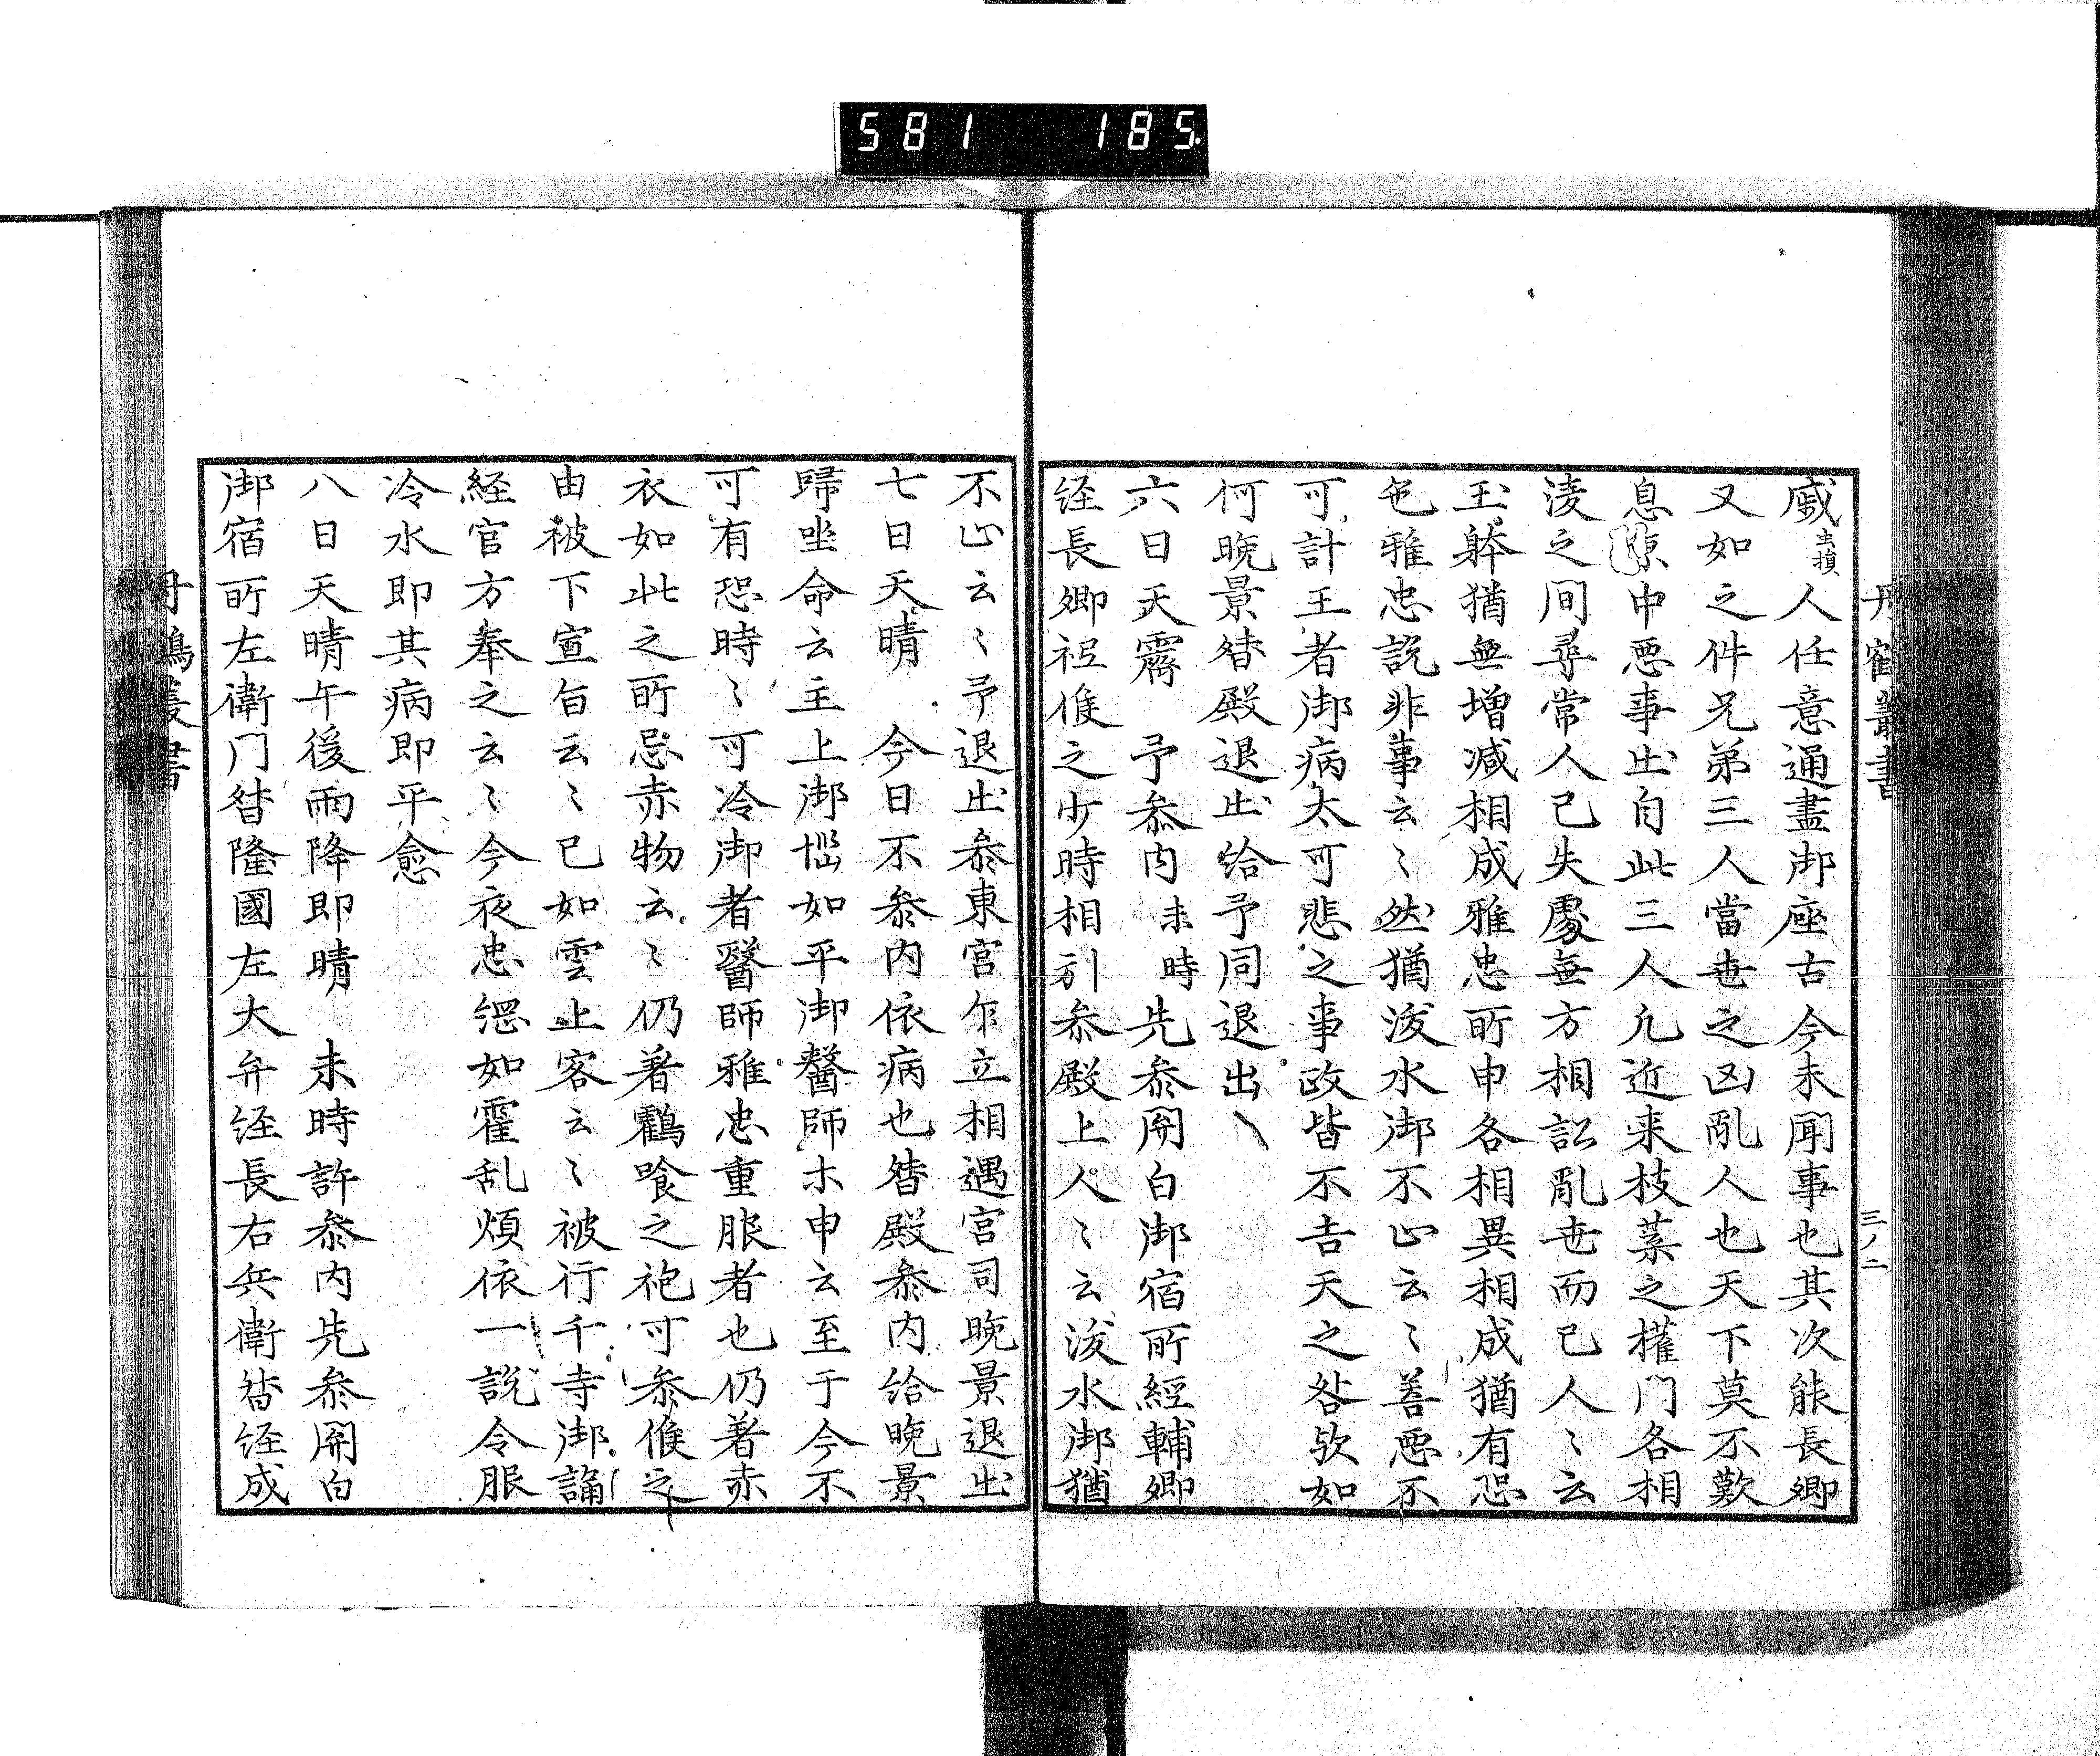 581 185
丹鶴叢書
三ノ二
戚虫損人任意通盡御座古今未聞事也其次能長卿
又如之件兄弟三人當世之凶亂人也天下莫不歎
息中悪事出自此三人凡近来枝葉之權門各相
淩之間尋常人已失處無方相訟亂世而已人〻云
玉躰猶無増減相成雅忠所申各相異相成猶有恐
色雅忠説非事云〻然猶泼水御不止云〻善悪不
可計王者御病太可悲之事政皆不吉天之咎欤如
何晩景督殿退出給予同退出
六日天霽　予叅内未時先叅関白御宿所經輔卿
経長卿祗候之少時相引叅殿上人〻云泼水御猶
不止云〻予退出叅東宮乍立相遇宮司晩景退出
七日天晴　今日不叅内依病也督殿叅内給晩景
歸坐命云主上御惱如平御醫師木申云至于今不
可有恐時〻可冷御者醫師雅忠重服者也仍著赤
衣如此之所忌赤物云〻仍著鸖喰之袍可叅候之
由被下宣旨云〻已如雲上客云〻被行千寺御誦
経官方奉之云〻今夜忠綛如霍乱煩依一説令服
冷水即其病即平愈
八日天晴午後雨降即晴　未時許叅内先叅関白
御宿所左衛门督隆國左大弁経長右兵衛督経成
丹鶴叢書